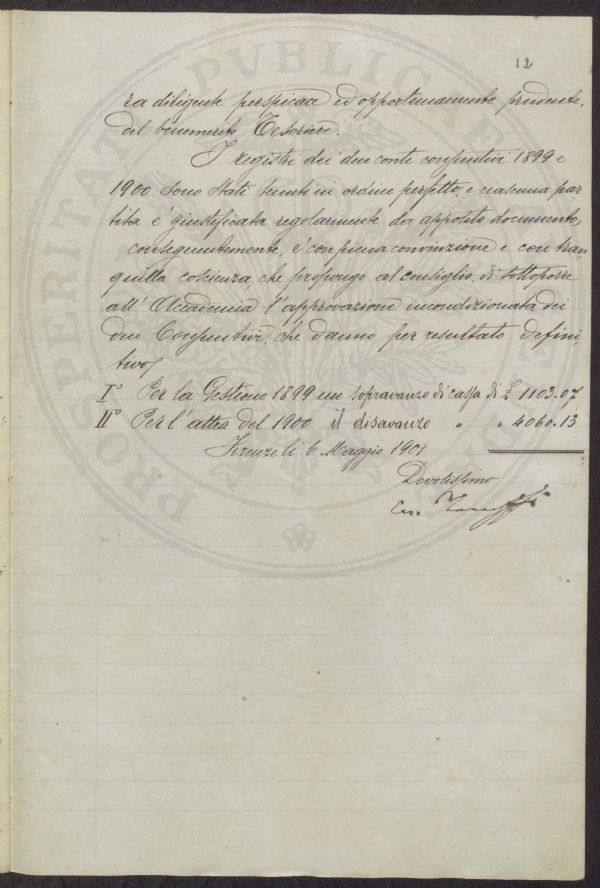 12
ra diligente perspicace ed opportunamente prudente,
del benemerito Tesoriere.
I registri dei due conti consuntivi 1899 e
1900 sono stati tenuti in ordine perfetto, e ciascuna par
tita e' giustificata regolarmente da apposito documento,
conseguentemente, e' con piena convinzione e con tran
quilla coscienza, che propongo al consiglio, di sottoporre
all' Accademia l'approvazione incondizionata dei
due Consuntivi, che danno per resultato defini-
tivo
I° Per la Gestione 1899 un sopravanzo di cassa di £ 1103.07
II° Per l'altra del 1900 il disavanzo " " 4060.13
Firenze li 6 Maggio 1901
Devotissimo
PROSPERITATI PVBLICAE